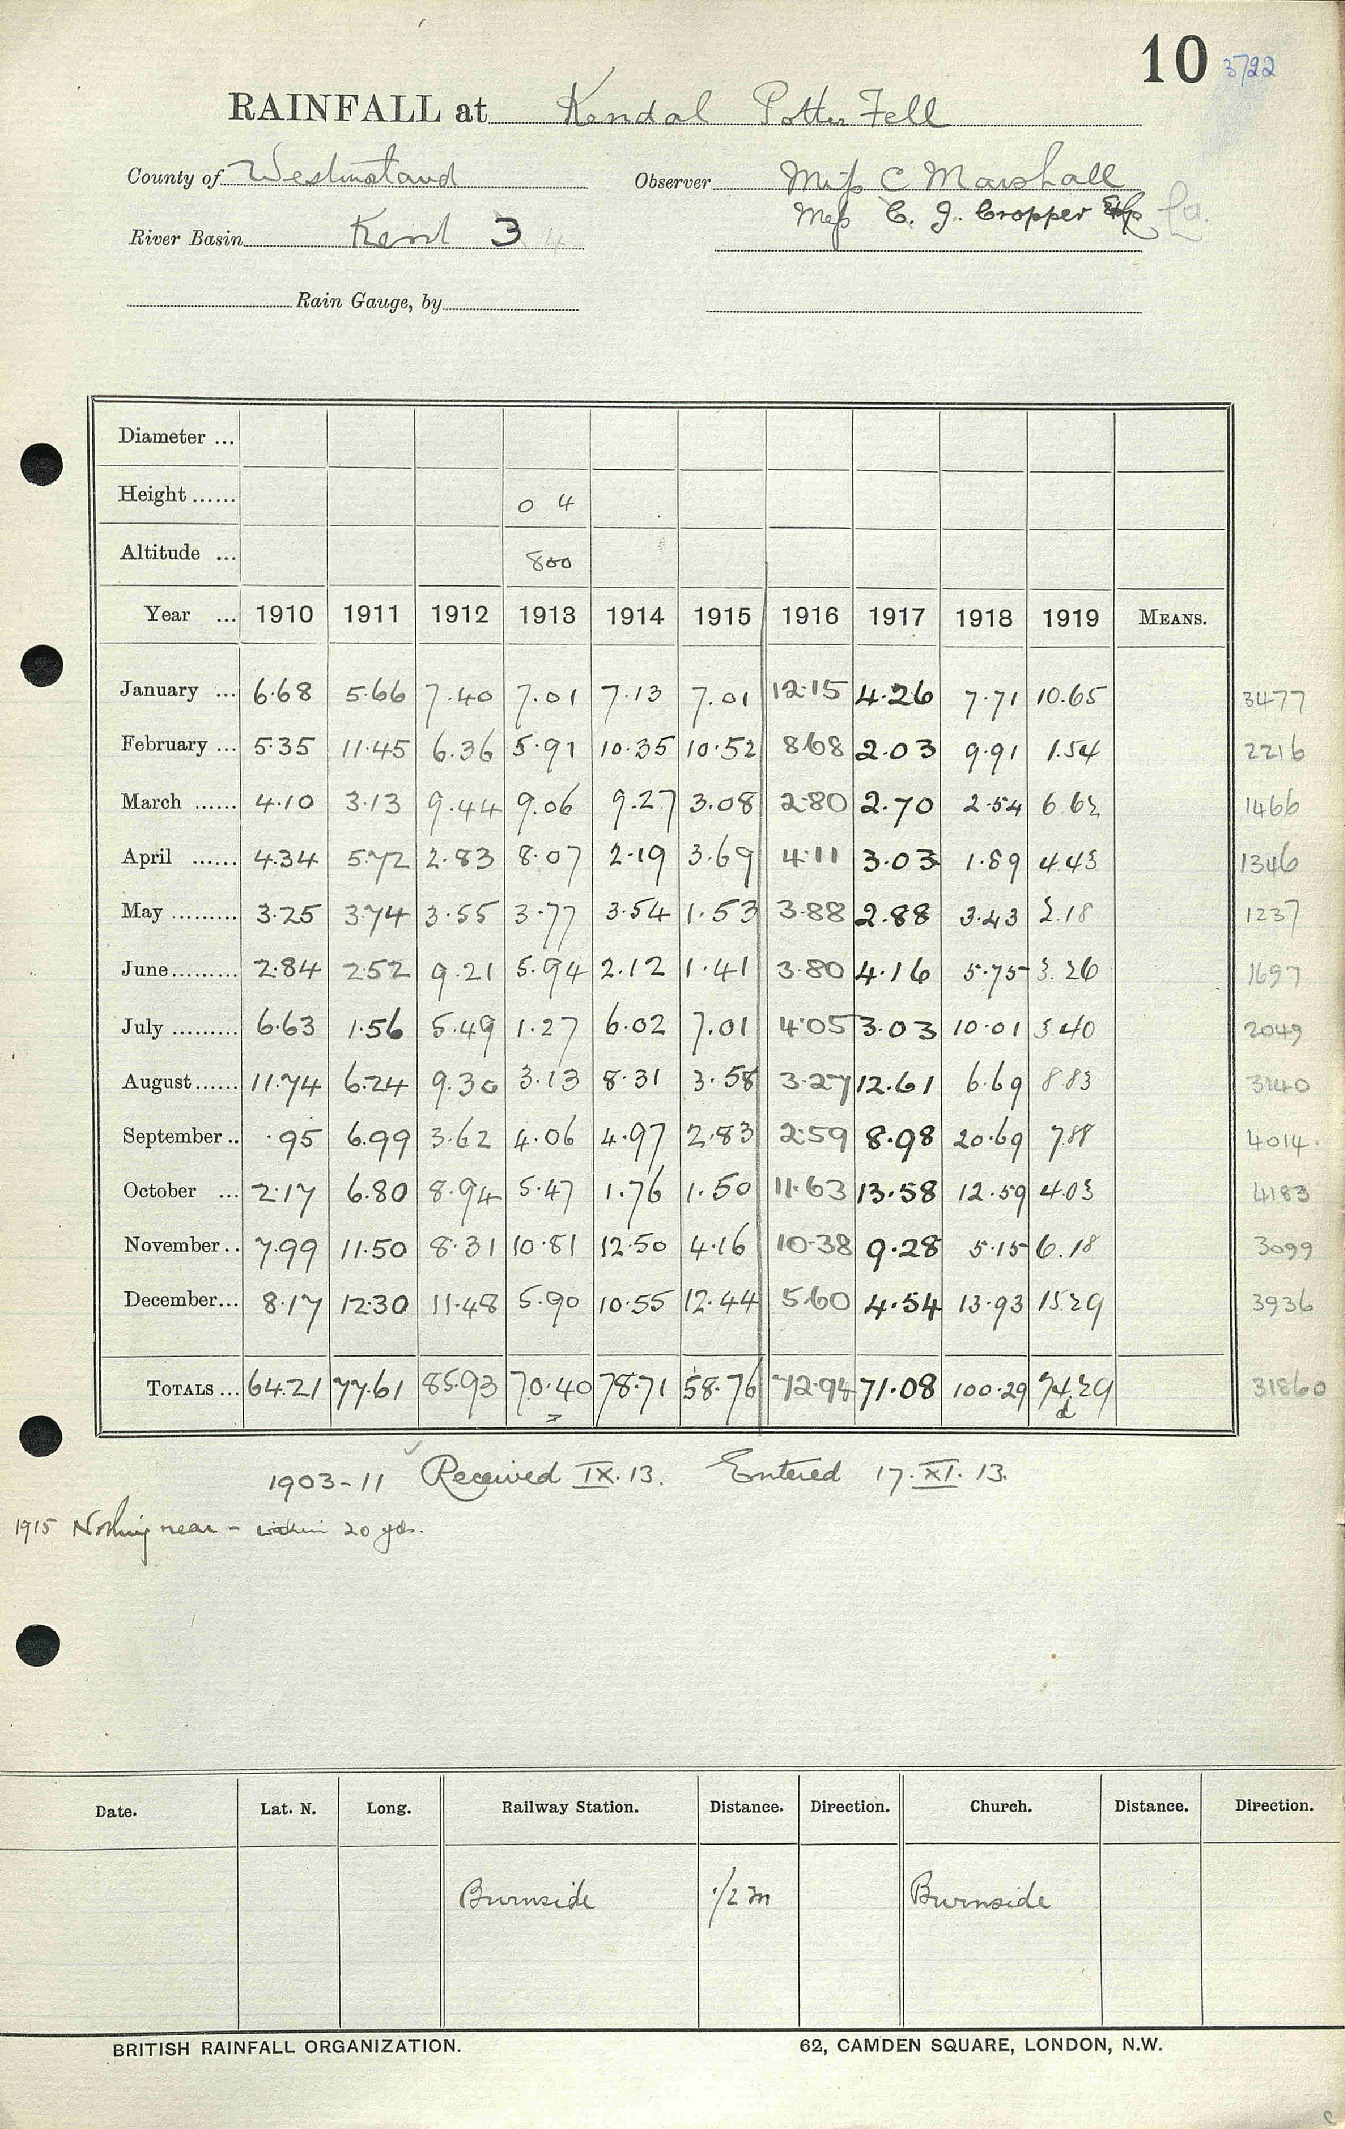 10 3722
RAINFALL at Kendal Potter Fell
County of Westmorland Observer Miss C Marshall
Mess C. J. Cropper
River Basin Kent 3 4
Rain Gauge, by
Diameter ...
Height ...... 0 4
Altitude ... 800
Year ... 1910 1911 1912 1913 1914 1915 1916 1917 1918 1919 MEANS.
January ... 6.68 5.66 7.40 7.01 7.13 7.01 12.15 4.26 7.71 10.65 3477
February ... 5.35 11.45 6.36 5.91 10.35 10.52 8.68 2.03 9.91 1.54 2216
March ...... 4.10 3.13 9.44 9.06 9.27 3.08 2.80 2.70 2.54 6.62 1466
April ...... 4.34 5.72 2.83 8.07 2.19 3.69 4.11 3.03 1.89 4.43 1346
May ......... 3.25 3.74 3.55 3.77 3.54 1.53 3.88 2.88 3.43 2.18 1237
June......... 2.84 2.52 9.21 5.94 2.12 1.41 3.80 4.16 5.75 3.26 1697
July ......... 6.63 1.56 5.49 1.27 6.02 7.01 4.05 3.03 10.01 3.40 2049
August...... 11.74 6.24 9.30 3.13 8.31 3.58 3.27 12.61 6.69 8.83 3140
September .. .95 6.99 3.62 4.06 4.97 2.83 2.59 8.98 20.69 7.88 4014.
October ... 2.17 6.80 8.94 5.47 1.76 1.50 11.63 13.58 12.59 4.03 4183
November .. 7.99 11.50 8.31 10.81 12.50 4.16 10.38 9.28 5.15 6.18 3099
December... 8.17 12.30 11.48 5.90 10.55 12.44 5.60 4.54 13.93 15.29 3936
TOTALS ... 64.21 77.61 85.93 70.40 78.71 58.76 72.94 71.08 100.29 74.29 31860
1903-11 Received IX.13. Entered 17.XI.13.
1915 Nothing near - within 20 yds.
Date. Lat. N. Long. Railway Station. Distance. Direction. Church. Distance. Direction.
Burnside 1/2 m Burnside
BRITISH RAINFALL ORGANIZATION. 62, CAMDEN SQUARE, LONDON, N.W.